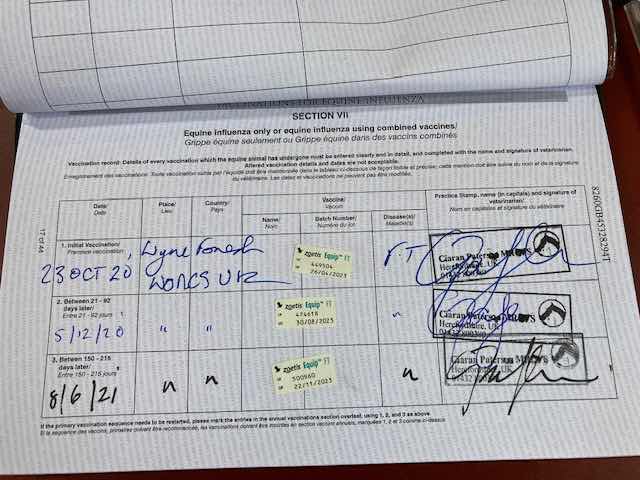 VACCINATIONS FOR EQUINE INFLUENZA
SECTION VII
Equine influenza only or equine influenza using combined vaccines/
Grippe équine seulement ou Grippe équine dans des vaccins combinés
Vaccination record: Details of every vaccination which the equine animal has undergone must be entered clearly and in detail, and completed with the name and signature of veterinarian.
Altered vaccination details and dates are not acceptable.
Enregistrement des vaccinations: Toute vaccination subie par l'équidé doit être mentionnée dans le tableau ci-dessous de façon lisible et précise; cette mention doit être suivie du nom et de la signature
du vétérinaire. Les dates et vaccinations ne peuvent pas être modifiés.
Date/
Date
Place/
Lieu
Country/
Pays
Vaccine/
Vaccin
Name/
Nom
Batch Number/
Numéro du lot
Disease(s)/
Maladie(s)
Practice Stamp, name (in capitals) and signature of
veterinarian/
Nom en capitales et signature du vétérinaire
17 of 48
1. Initial Vaccination/
Première vaccination
23 OCT 20
WORCS UK
zoetis Equip™ FT
449504
26/04/2023
F.T
Ciaran Paterson MRCVS
Herefordshire, UK
01432 800380
2. Between 21 - 92
days later/
Entre 21 - 92 jours
5/12/20
"
"
zoetis Equip™ FT
474618
30/08/2023
"
Ciaran Paterson MRCVS
Herefordshire, UK
3. Between 150 - 215
days later/
Entre 150 - 215 jours
8/6/21
"
"
zoetis Equip™ FT
500960
22/11/2023
"
Ciaran Paterson MRCVS
Herefordshire, UK
If the primary vaccination sequence needs to be restarted, please mark the entries in the annual vaccinations section overleaf, using 1, 2, and 3 as above